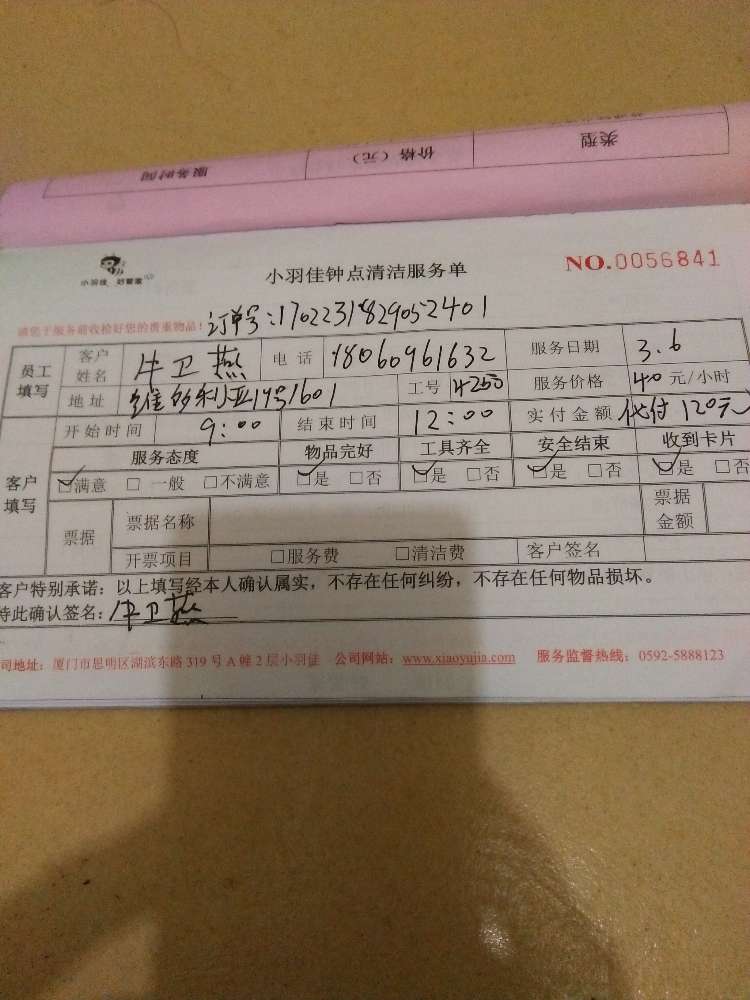 类型 价格（元） 服务时间
小羽佳 好管家
小羽佳钟点清洁服务单 NO.0056841
请您于服务前收检好您的贵重物品！ 订单号:17022318290522401
员工填写 客户姓名 牛卫燕 电话 18060961632 服务日期 3.6
地址 维多利亚19号1601 工号 4255 服务价格 40 元/小时
开始时间 9:00 结束时间 12:00 实付金额 代付120元
客户填写 服务态度 物品完好 工具齐全 安全结束 收到卡片
☑满意 □一般 □不满意 ☑是 □否 ☑是 □否 ☑是 □否 ☑是 □否
票据 票据名称 票据金额
开票项目 □服务费 □清洁费 客户签名
客户特别承诺：以上填写经本人确认属实，不存在任何纠纷，不存在任何物品损坏。
特此确认签名：牛卫燕
司地址：厦门市思明区湖滨东路319号A幢2层小羽佳 公司网站：www.xiaoyujia.com 服务监督热线：0592-5888123